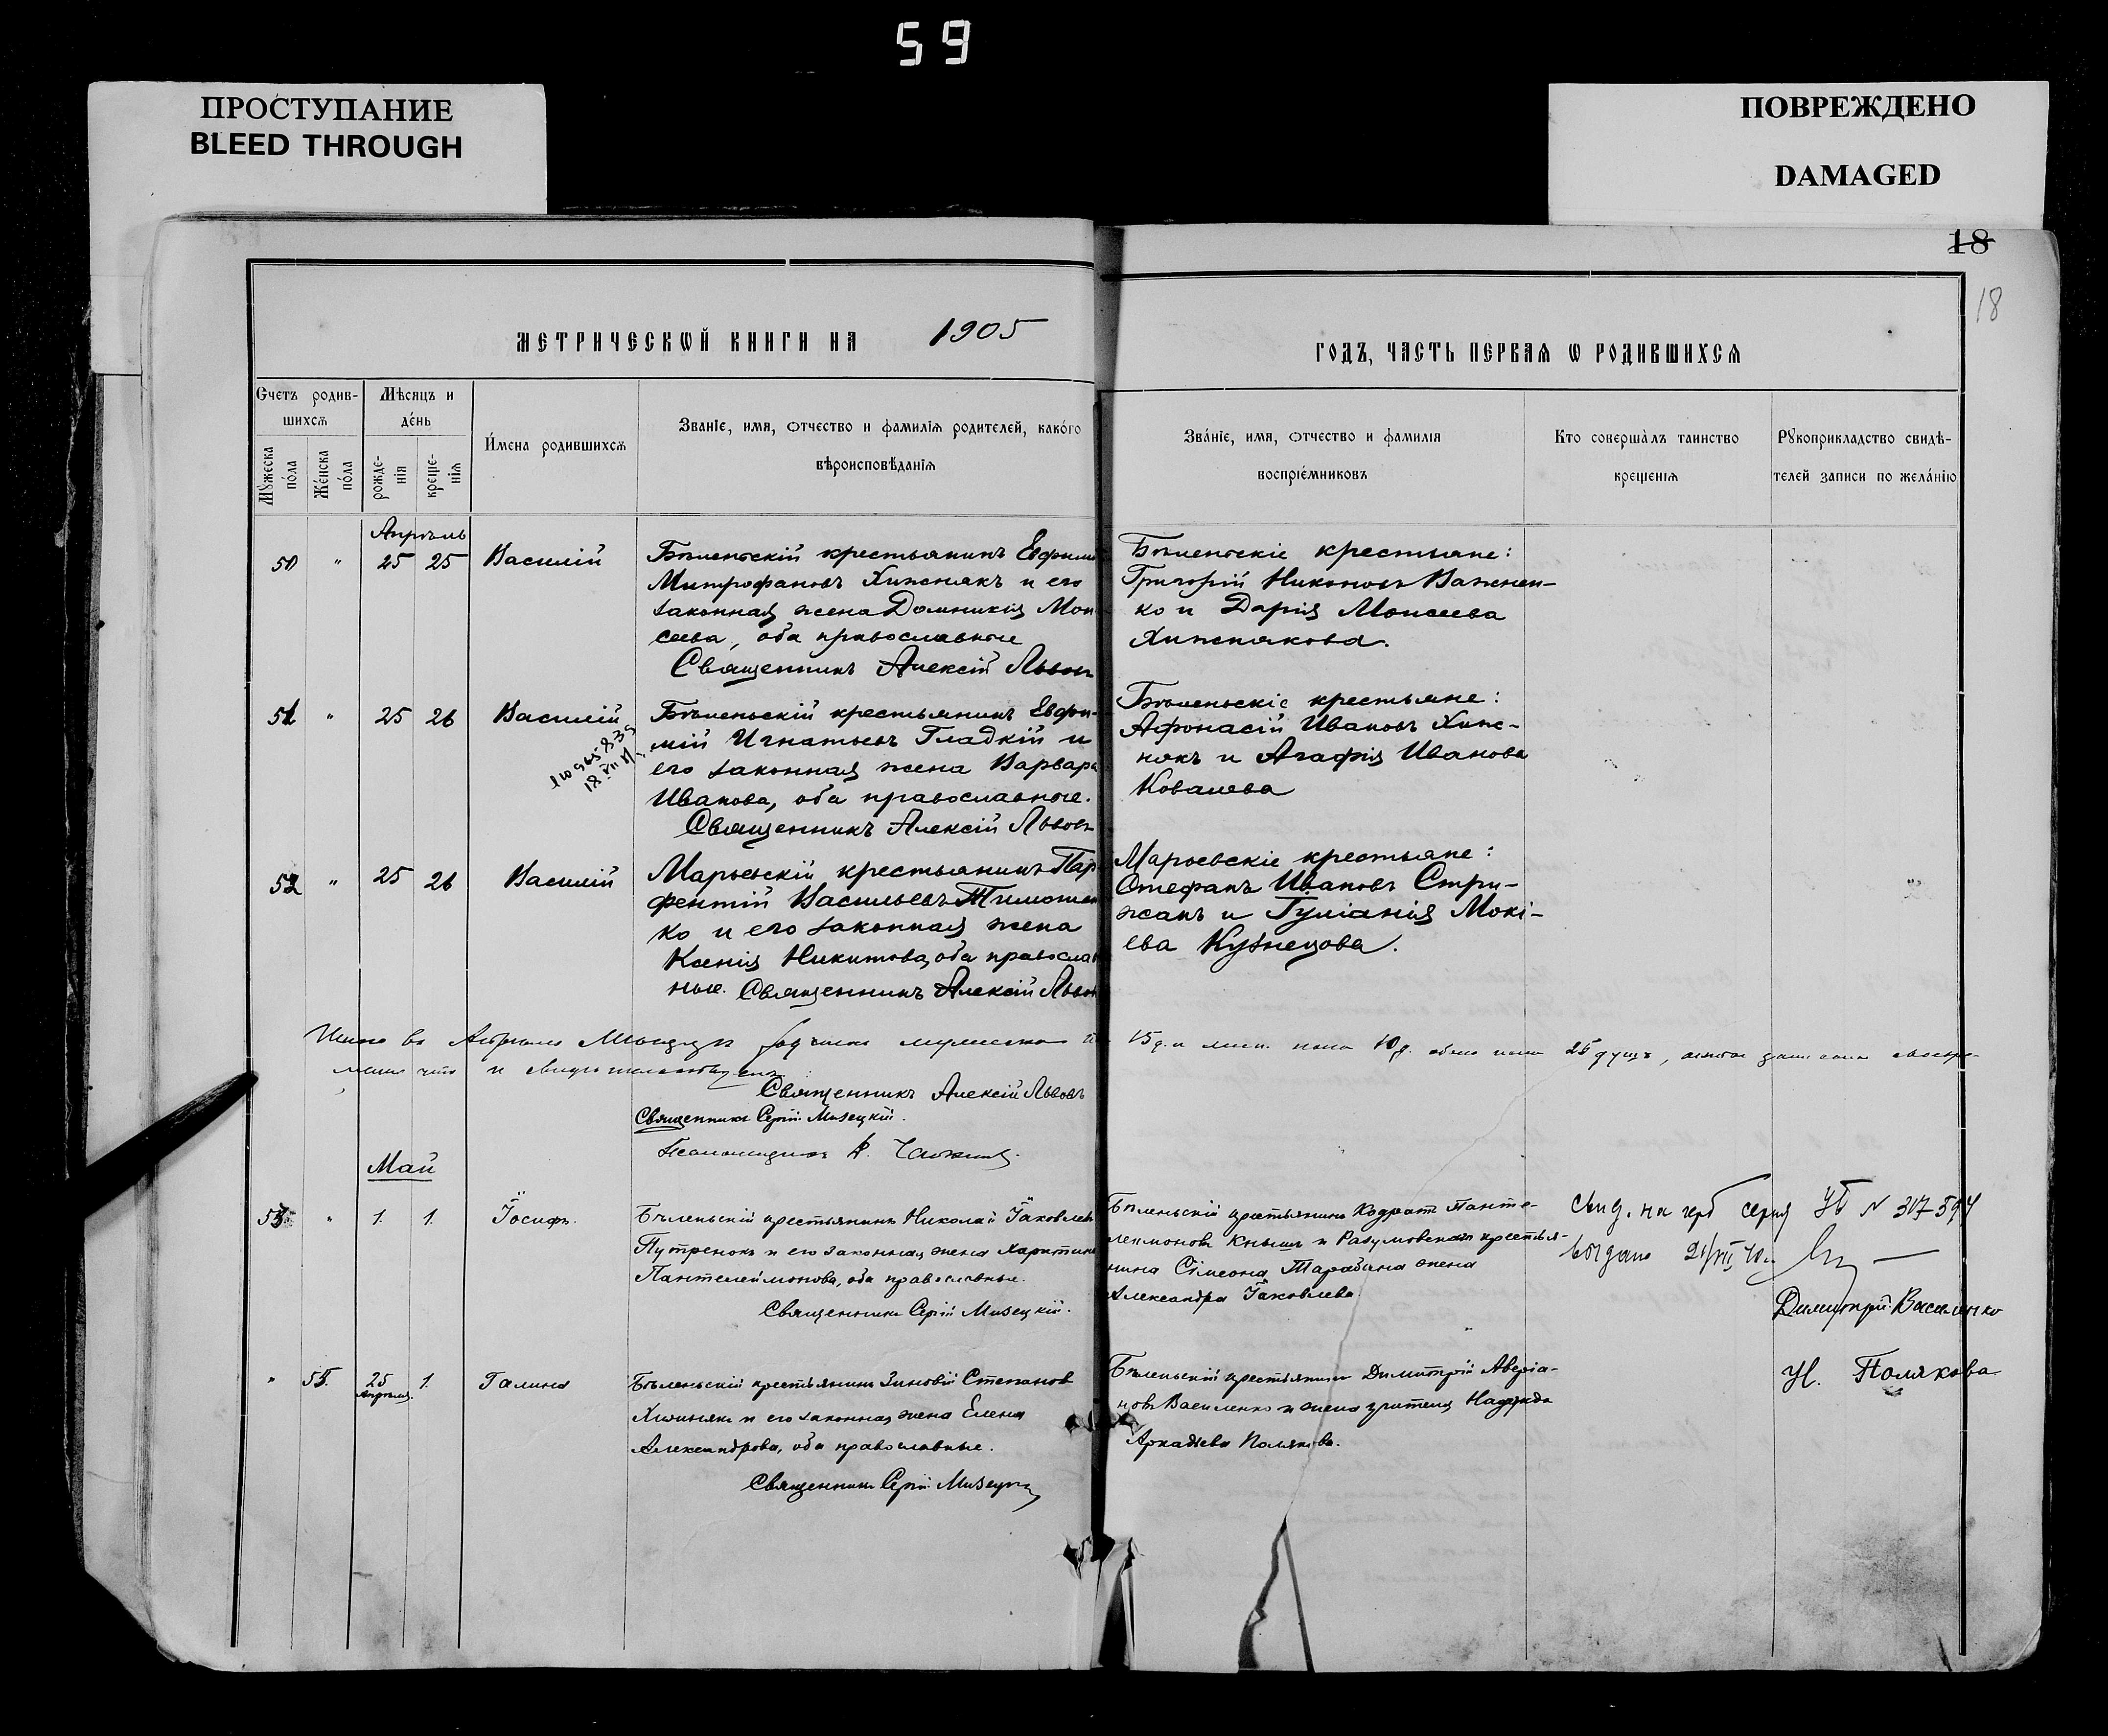 59
ПРОСТУПАНИЕ
BLEED THROUGH
ПОВРЕЖДЕНО
DAMAGED
18
18
МЕТРИЧЕСКѠЙ КНИГИ НА 1905
ГОДЪ, ЧАСТЬ ПЕРВАѦ Ѡ РОДИВШИХСѦ
Счетъ родив-
шихсѧ
Мѣсяцъ и
де́нь
Мꙋжеска
по́ла
Же́нска
по́ла
рожде-
нія
креще-
нія
И́мена родившихсѧ
Званіе, имя, отчество и фамилія родителей, како́го
вѣроисповѣданія
Зва́ніе, имя, отчество и фамилія
воспріе́мниковъ
Кто соверша̀лъ таинство
крещенія
Рꙋкоприкладство свидѣ-
телей записи по жела́нію
Апрѣль
50 " 25 25 Василій
Бѣленьскій крестьянинъ Евфимій
Митрофановъ Хижнякъ и его
законная жена Домникія Мои
сеева, оба православные
Священникъ Алексій Львовъ
Бѣленьскіе крестьяне:
Григорій Никоновъ Важнен-
ко и Дарія Моисеева
Хижнякова.
51 " 25 26 Василій
18 VII
Бѣленьскій крестьянинъ Евфи-
мій Игнатьевъ Гладкій и
его законная жена Варвара
Иванова, оба православные.
Священникъ Алексій Львовъ
Бѣленьскіе крестьяне:
Афонасій Ивановъ Хиж-
някъ и Агафія Иванова
Ковалева
52 " 25 26 Василій
Марьевскій крестьянинъ Пар
фентій Васильевъ Тимошен
ко и его законная жена
Ксенія Никитова, оба православ
ные. Священникъ Алексій Львовъ
Марьевскіе крестьяне:
Стефанъ Ивановъ Стри-
жакъ и Гуліанія Мокі-
ева Кузнецова.
Итого въ Апрѣлѣ Мѣсяцѣ родилось мужеска 15 д. и женск. пола 10 д. обоего пола 25 душъ,
что и свидѣтельствуемъ
Священникъ Алексій Львовъ
Священникъ Сергій Мизецкій.
Псаломщикъ
Май
53. " 1. 1. Іосифъ.
Бѣленьскій крестьянинъ Николай Іаковлевъ
Путренокъ и его законная жена Харитина
Пантелеймонова, оба православные.
Священникъ Сергій Мизецкій.
Бѣленьскій крестьянинъ Кодратъ Панте-
леимоновъ Кнышъ и Разумовская крестья-
нина Сѵмеона Тарабана жена
Александра Іаковлева.
Свид. на герб серия УБ N 307594
выдано 21/VII 40г.
Димитрій Василенко
" 55. 25 Апрѣля. 1. Галина
Бѣленьскій крестьянинъ Зиновій Степановъ
Хижнякъ и его законная жена Елена
Александрова, оба православные.
Священникъ Сергій Мизецкій
Бѣленьскій крестьянинъ Димитрій Аверіа-
новъ Василенко и жена учителя Надежда
Аркадіева Полякова.
Н. Полякова